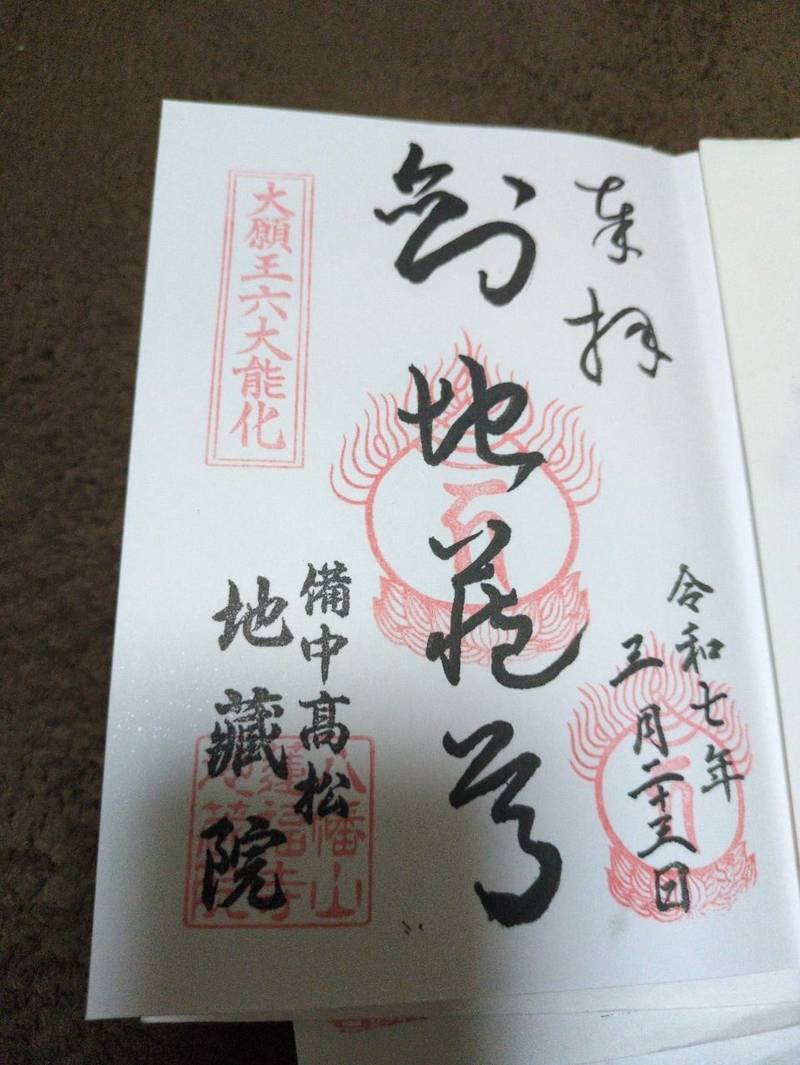 奉拝
令和七年
三月二十三日
剣地蔵尊
備中高松
地藏院
大願王六大能化
八幡山
蓮福寺